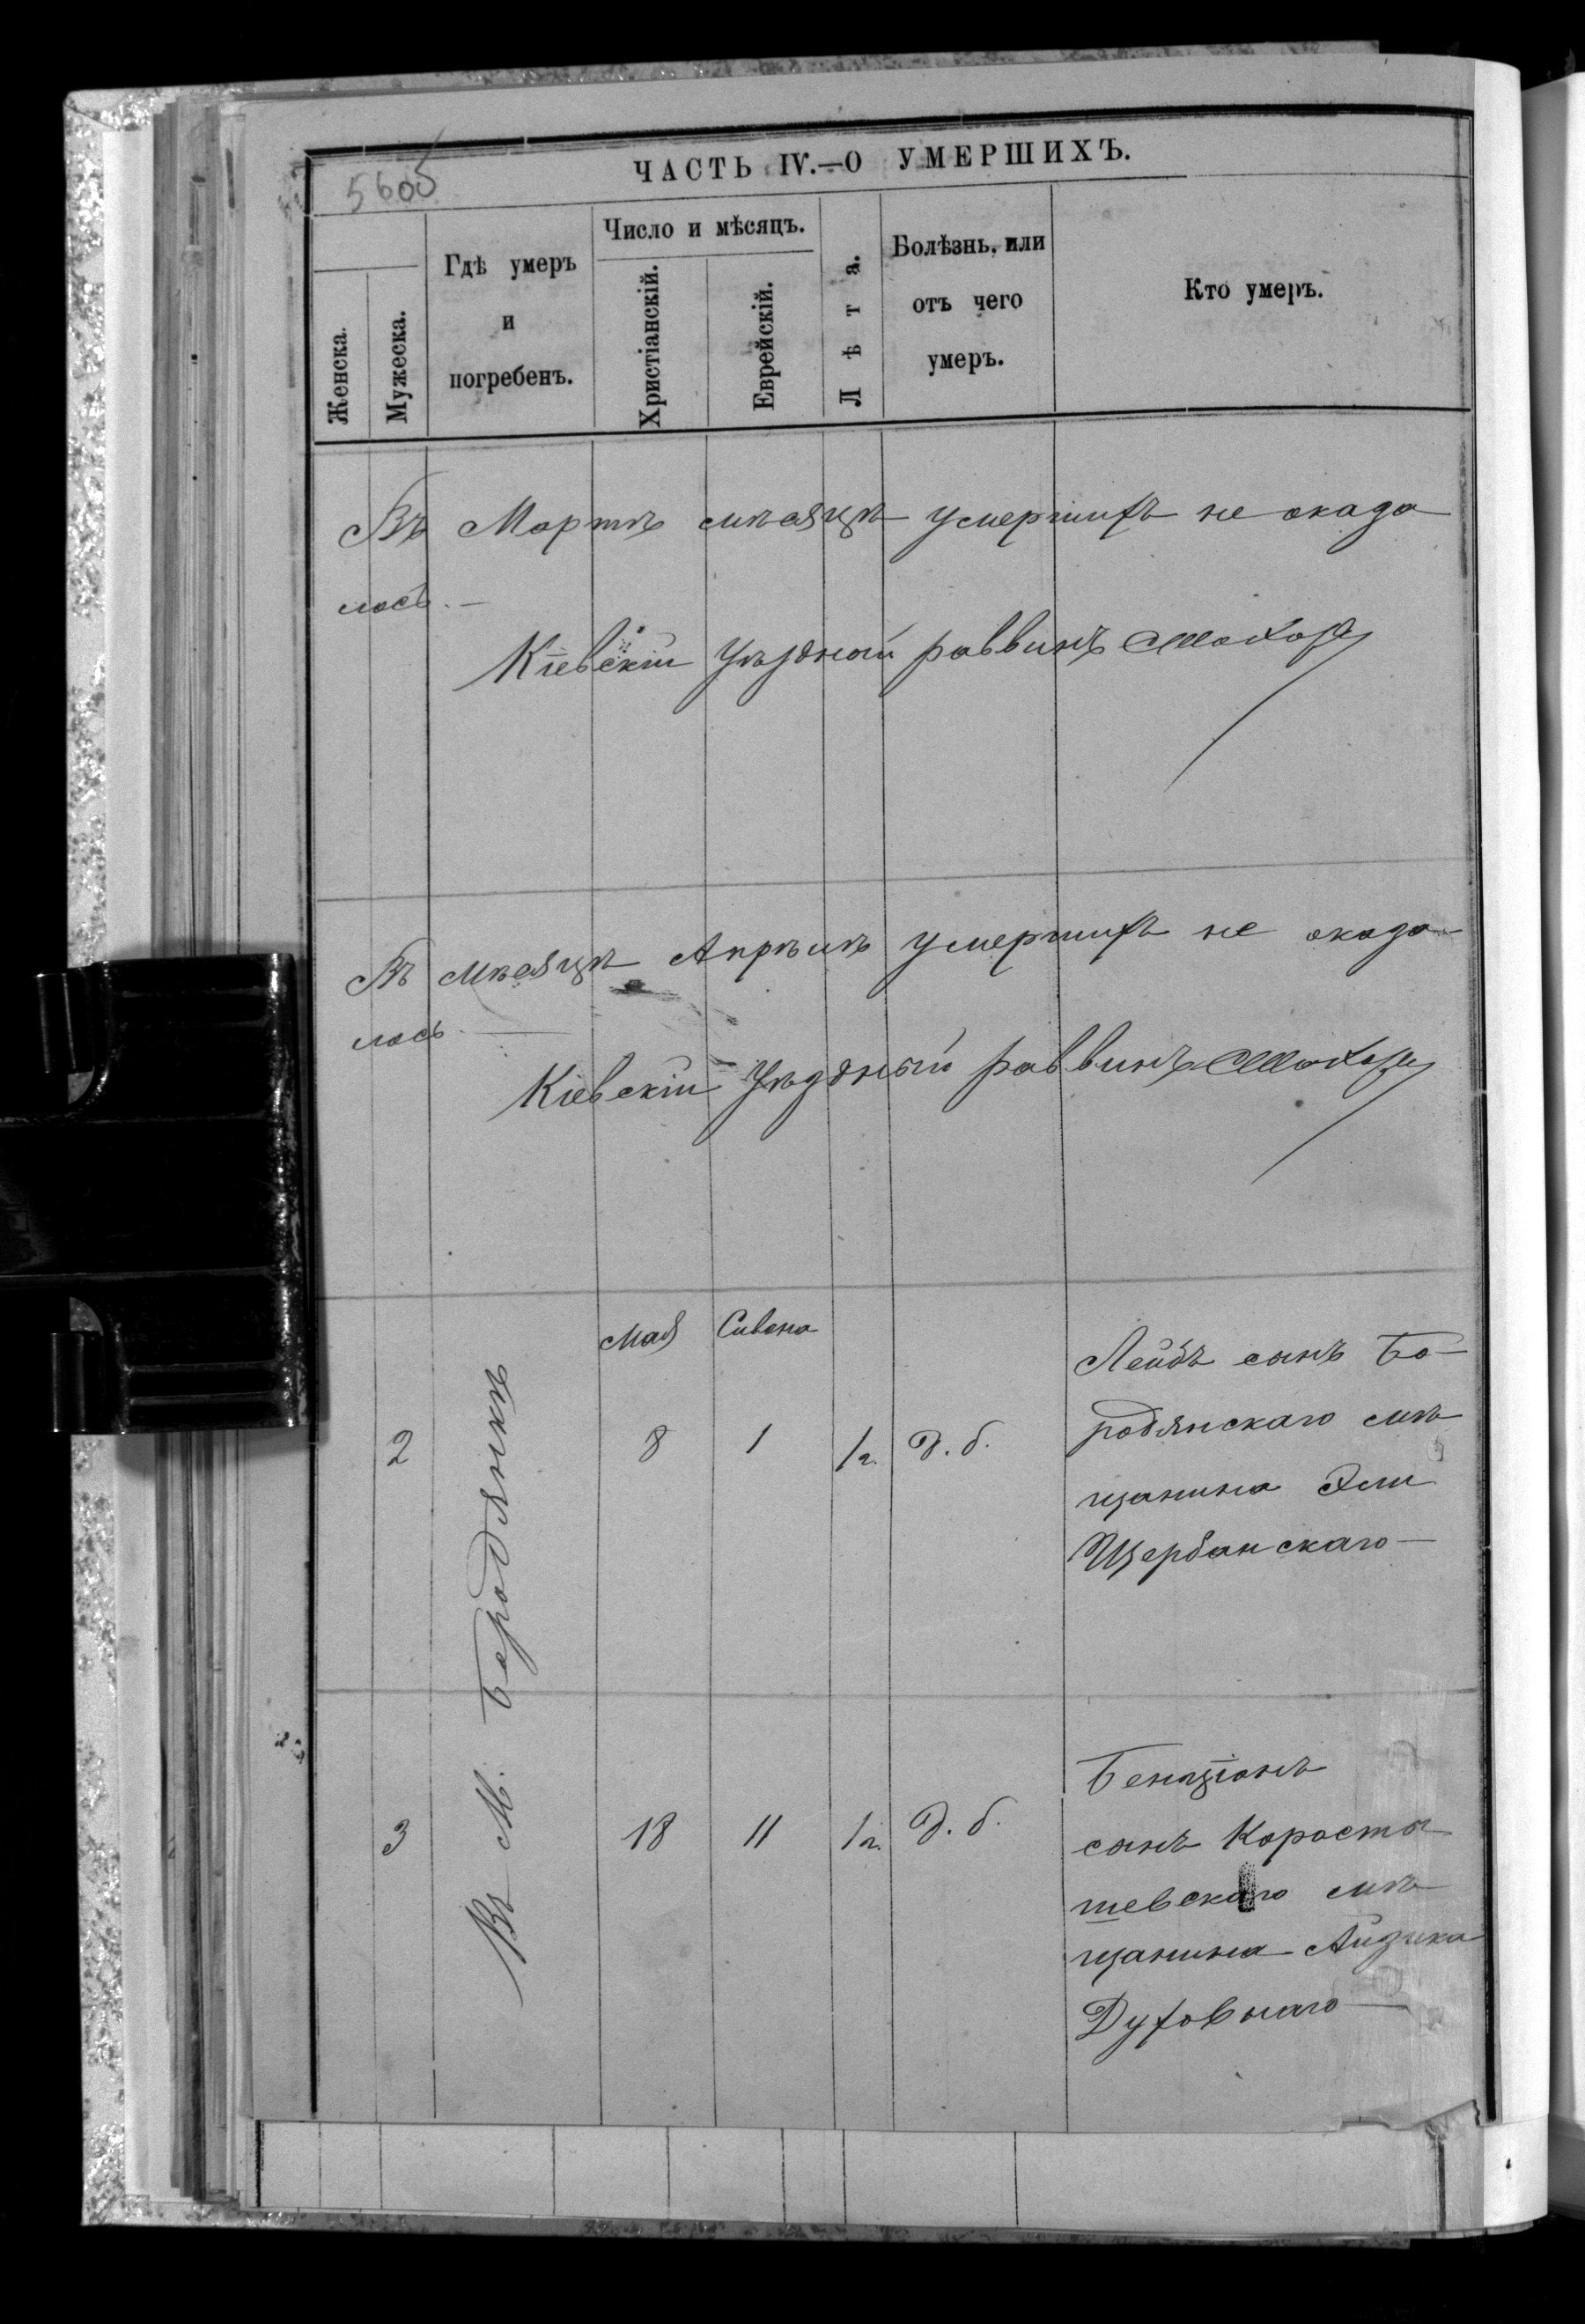 560б
ЧАСТЬ IV.—О УМЕРШИХЪ.
Женска.
Мужеска.
Гдѣ умеръ
и
погребенъ.
Число и мѣсяцъ.
Христіанскій.
Еврейскій.
Лѣта.
Болѣзнь, или
отъ чего
умеръ.
Кто умеръ.
Въ Мартѣ мѣсяцѣ умершихъ не оказа
лось. —
Кіевскій Уѣздный раввинъ
Въ мѣсяцѣ Апрѣлѣ умершихъ не оказа-
лось —
Кіевскій Уѣздный раввинъ
Въ М. Бородянкѣ
Мая Сивана
2 8 1 1 г. Д. б.
Лейбъ сынъ Бо-
родянскаго мѣ
щанина Эли
Щербанскаго —
3 18 11 1 г. Д. б.
Бенціонъ
сынъ Коросты
шевскаго мѣ
щанина Айзика
Духовнаго —